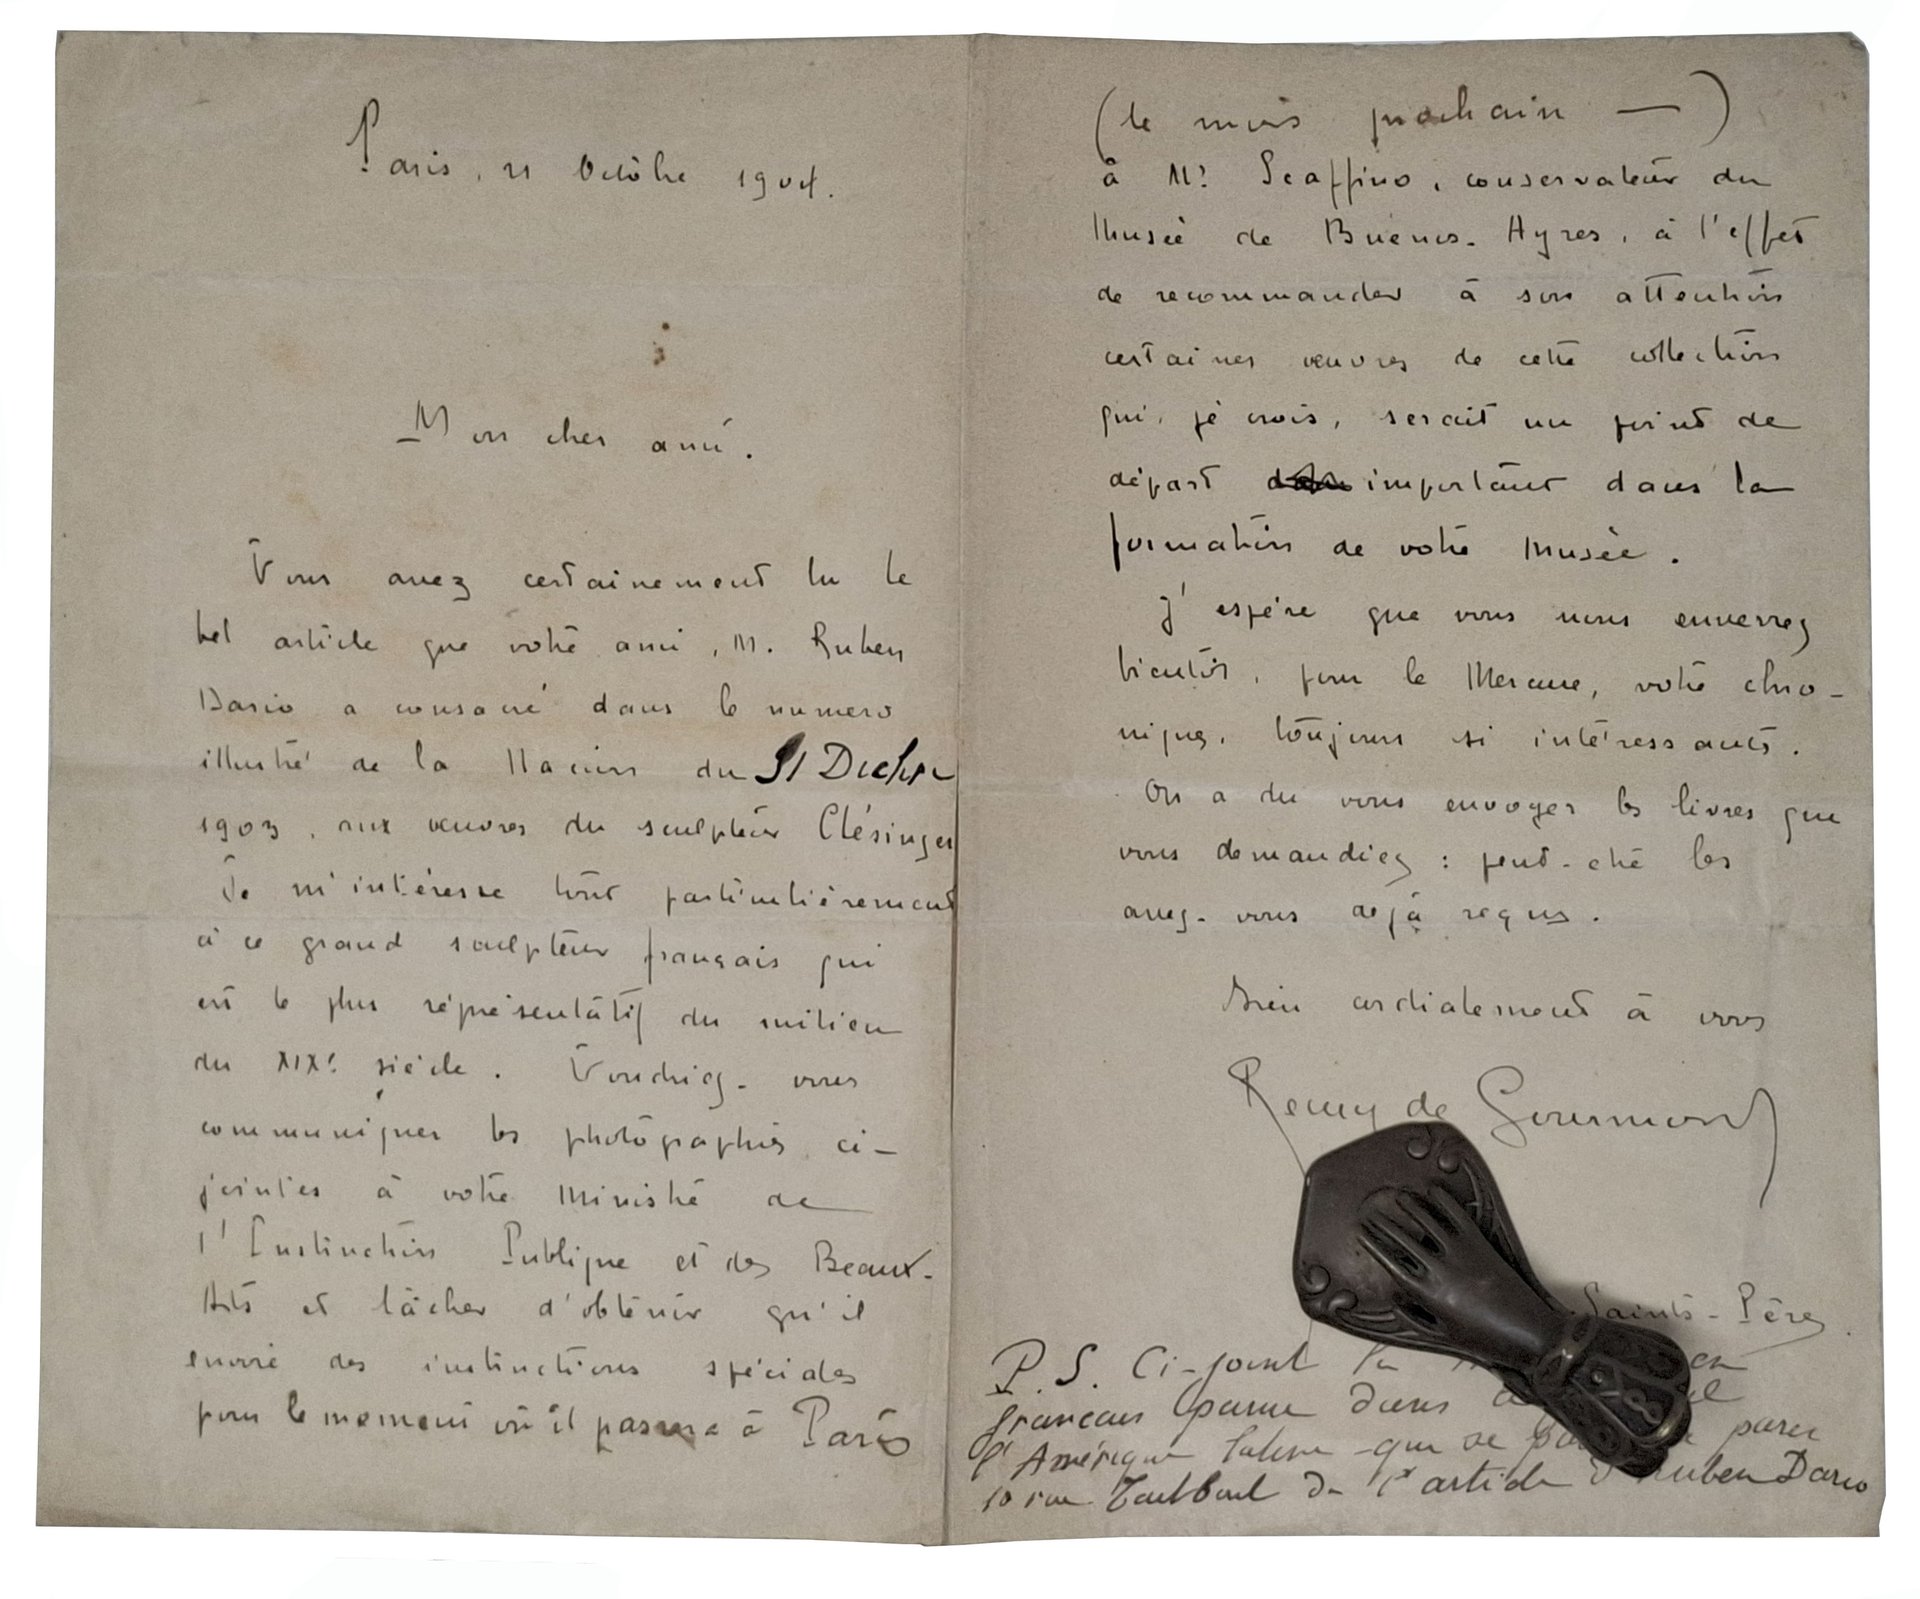 Paris, 21 Octobre 1904.
Mon cher ami.
Vous avez certainement lu le
bel article que votre ami, M. Ruben
Dario a consacré dans le numero
illustré de la Nacion du 31 Decbre
1903, aux œuvres du sculpteur Clésinger
Je m'intéresse tout particulièrement
à ce grand sculpteur français qui
est le plus réprésentatif du milieu
du XIXe siècle. Voudriez-vous
communiquer les photographies ci-
jointes à votre Ministre de
l'Instruction Publique et des Beaux-
Arts et tâcher d'obtenir qu'il
envoie des instructions spéciales
pour le moment où il passera à Paris
(le mois prochain —)
à Mr Scaffino, conservateur du
Musée de Buenos-Ayres, à l'effet
de recommander à son attention
certaines œuvres de cette collection
qui, je crois, serait un point de
départ important dans la
formation de votre Musée.
J'espère que vous nous enverrez
bientôt, pour le Mercure, votre chro-
nique, toujours si intéressante.
On a du vous envoyer les livres que
vous demandiez : peut-etre les
avez-vous dejà reçus.
Bien cordialement à vous
Remy de Gourmont
Saints-Pères.
P.S. Ci-joint la en
francais parue dans
l'Amérique latine que se paree
10 rue Taitbout De l'article d Ruben Dario